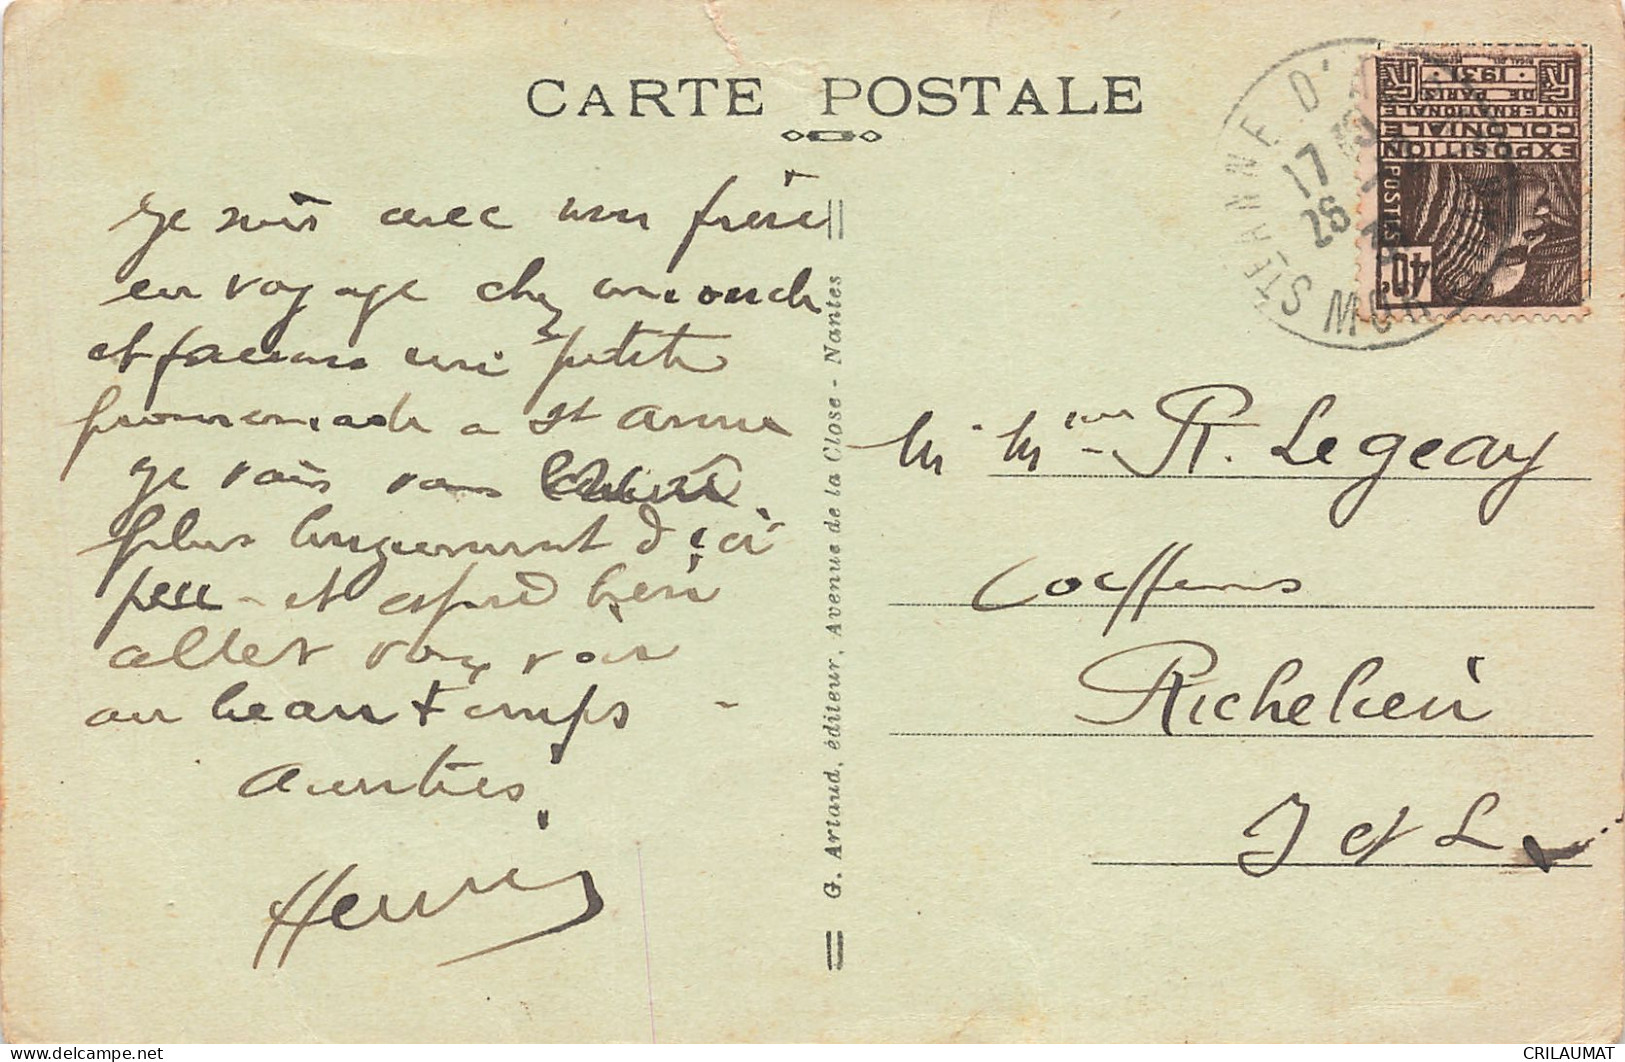 CARTE POSTALE
Je suis avec mon frère
en voyage chez un oncle
et faisons une petite
promenade a St Anne
je vais vous écrire
plus longuement d'ici
peu - et espère bien
aller vous voir
au beau temps -
Amitiés.
Henri
G. Artaud, éditeur, Avenue de la Close - Nantes
STE ANNE D'A
17
26
MOR
EXPOSITION
COLONIALE
INTERNATIONALE
DE PARIS
· 1931 ·
POSTES
40c
M. Mme R. Legeay
Coiffeurs
Richelieu
I et L
CRILAUMAT